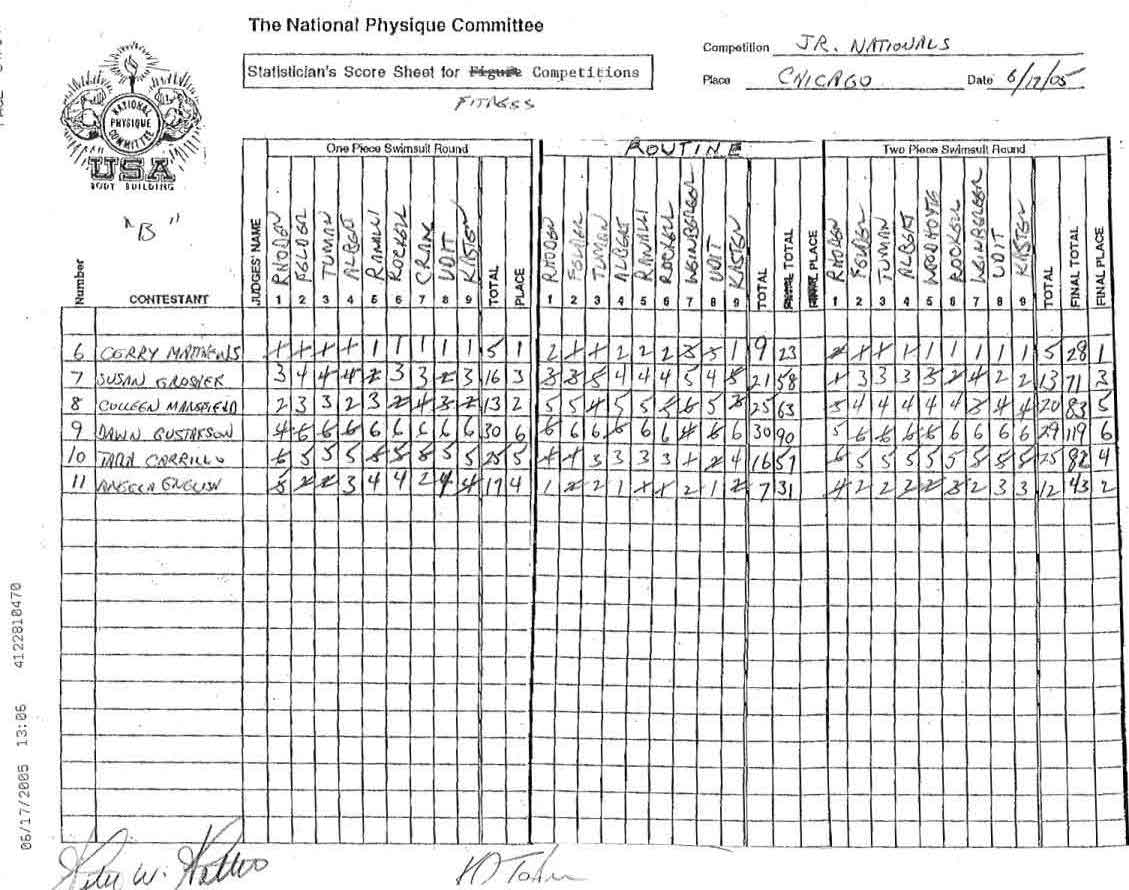 The National Physique Committee
Competition JR. NATIONALS
Statistician's Score Sheet for Figure Competitions
Place CHICAGO Date 6/17/05
FITNESS
NATIONAL PHYSIQUE COMMITTEE
USA
BODY BUILDING
"B"
One Piece Swimsuit Round ROUTINE Two Piece Swimsuit Round
Number CONTESTANT JUDGES' NAME
RHODEN FELDER TUMAN ALBERT RANALLI ROCKELL CRANE UDIT KASTEN TOTAL PLACE
RHODEN FELDER TUMAN ALBERT RANALLI ROCKELL WEINBERGER UDIT KASTEN TOTAL TOTAL PLACE
RHODEN FELDER TUMAN ALBERT ROCKELL WEINBERGER UDIT KASTEN TOTAL FINAL TOTAL FINAL PLACE
1 2 3 4 5 6 7 8 9 1 2 3 4 5 6 7 8 9 1 2 3 4 5 6 7 8 9
6 GERRY MATTHEWS 1 1 1 1 1 5 1 2 2 2 2 1 9 23 1 1 1 1 1 5 28 1
7 SUSAN GROSHEK 3 4 4 4 2 3 3 2 3 16 3 3 3 5 4 4 4 5 4 5 21 58 1 3 3 3 3 2 4 2 2 13 71 3
8 COLLEEN MANSFIELD 2 3 3 2 3 2 4 3 2 13 2 5 5 4 5 5 5 6 5 3 25 63 3 4 4 4 4 4 3 4 4 20 83 5
9 DAWN GUSTAFSON 4 6 6 6 6 6 6 6 6 30 6 6 6 6 6 6 6 4 6 6 30 90 5 6 6 6 6 6 6 6 6 29 119 6
10 TARA CARRILLO 6 5 5 5 5 5 5 5 5 25 5 4 4 3 3 3 3 1 2 4 16 57 6 5 5 5 5 5 5 5 5 25 82 4
11 ANGELA ENGLISH 5 2 2 3 4 4 2 4 4 17 4 1 2 2 1 1 1 2 1 2 7 31 4 2 2 2 2 3 2 3 3 12 43 2
06/17/2005 13:06 4122810470